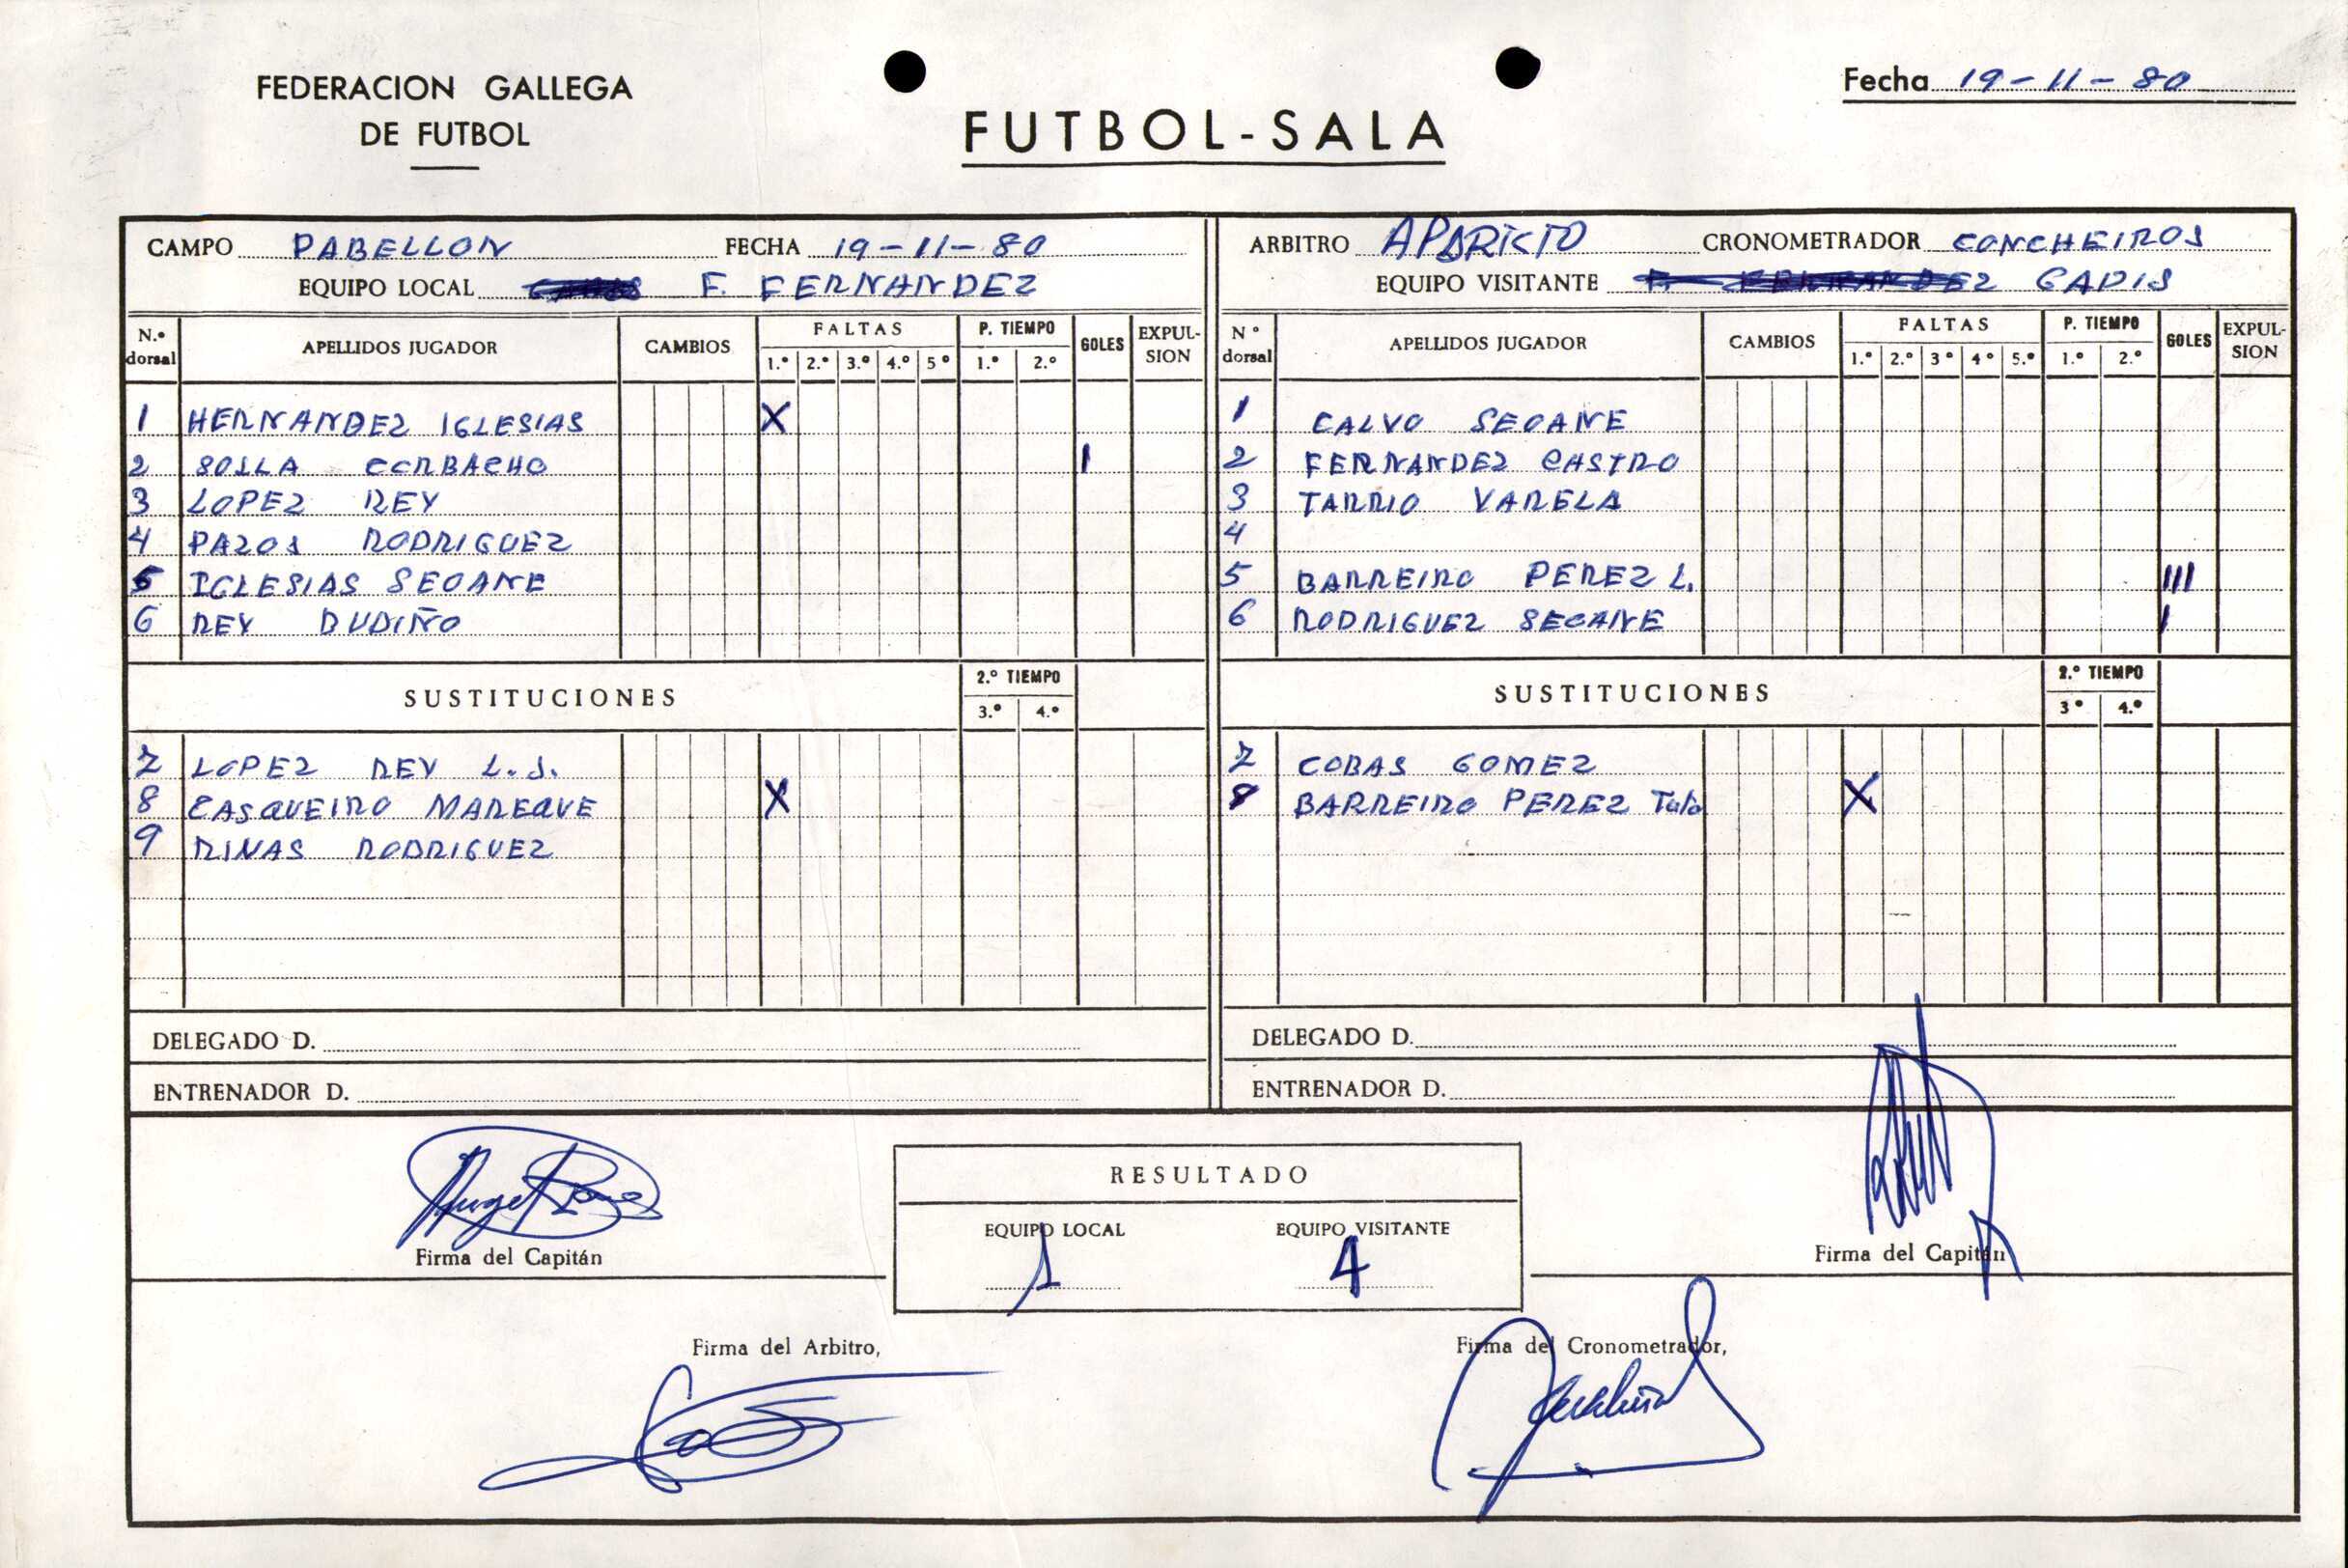 FEDERACION GALLEGA
DE FUTBOL
FUTBOL-SALA
Fecha 19-11-80
CAMPO PABELLON FECHA 19-11-80
EQUIPO LOCAL F. FERNANDEZ
N.º dorsal APELLIDOS JUGADOR CAMBIOS FALTAS 1.º 2.º 3.º 4.º 5º P. TIEMPO 1.º 2.º GOLES EXPULSION
1 HERNANDEZ IGLESIAS X
2 SOLLA CORBACHO I
3 LOPEZ REY
4 PAZOS RODRIGUEZ
5 IGLESIAS SEOANE
6 REY DUDIÑO
SUSTITUCIONES 2.º TIEMPO 3.º 4.º
7 LOPEZ REY L.J.
8 CASQUEIRO MAREQUE X
9 RIVAS RODRIGUEZ
DELEGADO D.
ENTRENADOR D.
ARBITRO APARICIO CRONOMETRADOR CONCHEIROS
EQUIPO VISITANTE GADIS
N º dorsal APELLIDOS JUGADOR CAMBIOS FALTAS 1.º 2.º 3º 4º 5.º P. TIEMPO 1.º 2.º GOLES EXPULSION
1 CALVO SEOANE
2 FERNANDEZ CASTRO
3 TARRIO VARELA
4
5 BARREIRO PEREZ L. III
6 RODRIGUEZ SEOANE I
SUSTITUCIONES 2.º TIEMPO 3º 4.º
7 COBAS GOMEZ
8 BARREIRO PEREZ X
DELEGADO D.
ENTRENADOR D.
Firma del Capitán
RESULTADO
EQUIPO LOCAL EQUIPO VISITANTE
1 4
Firma del Capitán
Firma del Arbitro,
Firma del Cronometrador,